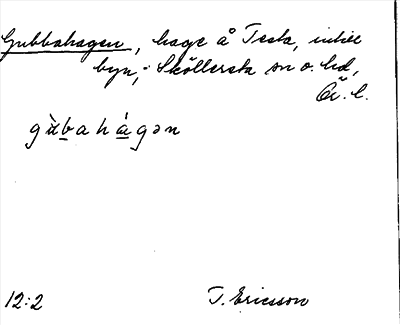 Gubbahagen, hage å Testa, intill
byn, Sköllersta sn o. hd,
Ör. l.
gu̇̀bahágən
12:2
T. Ericsson